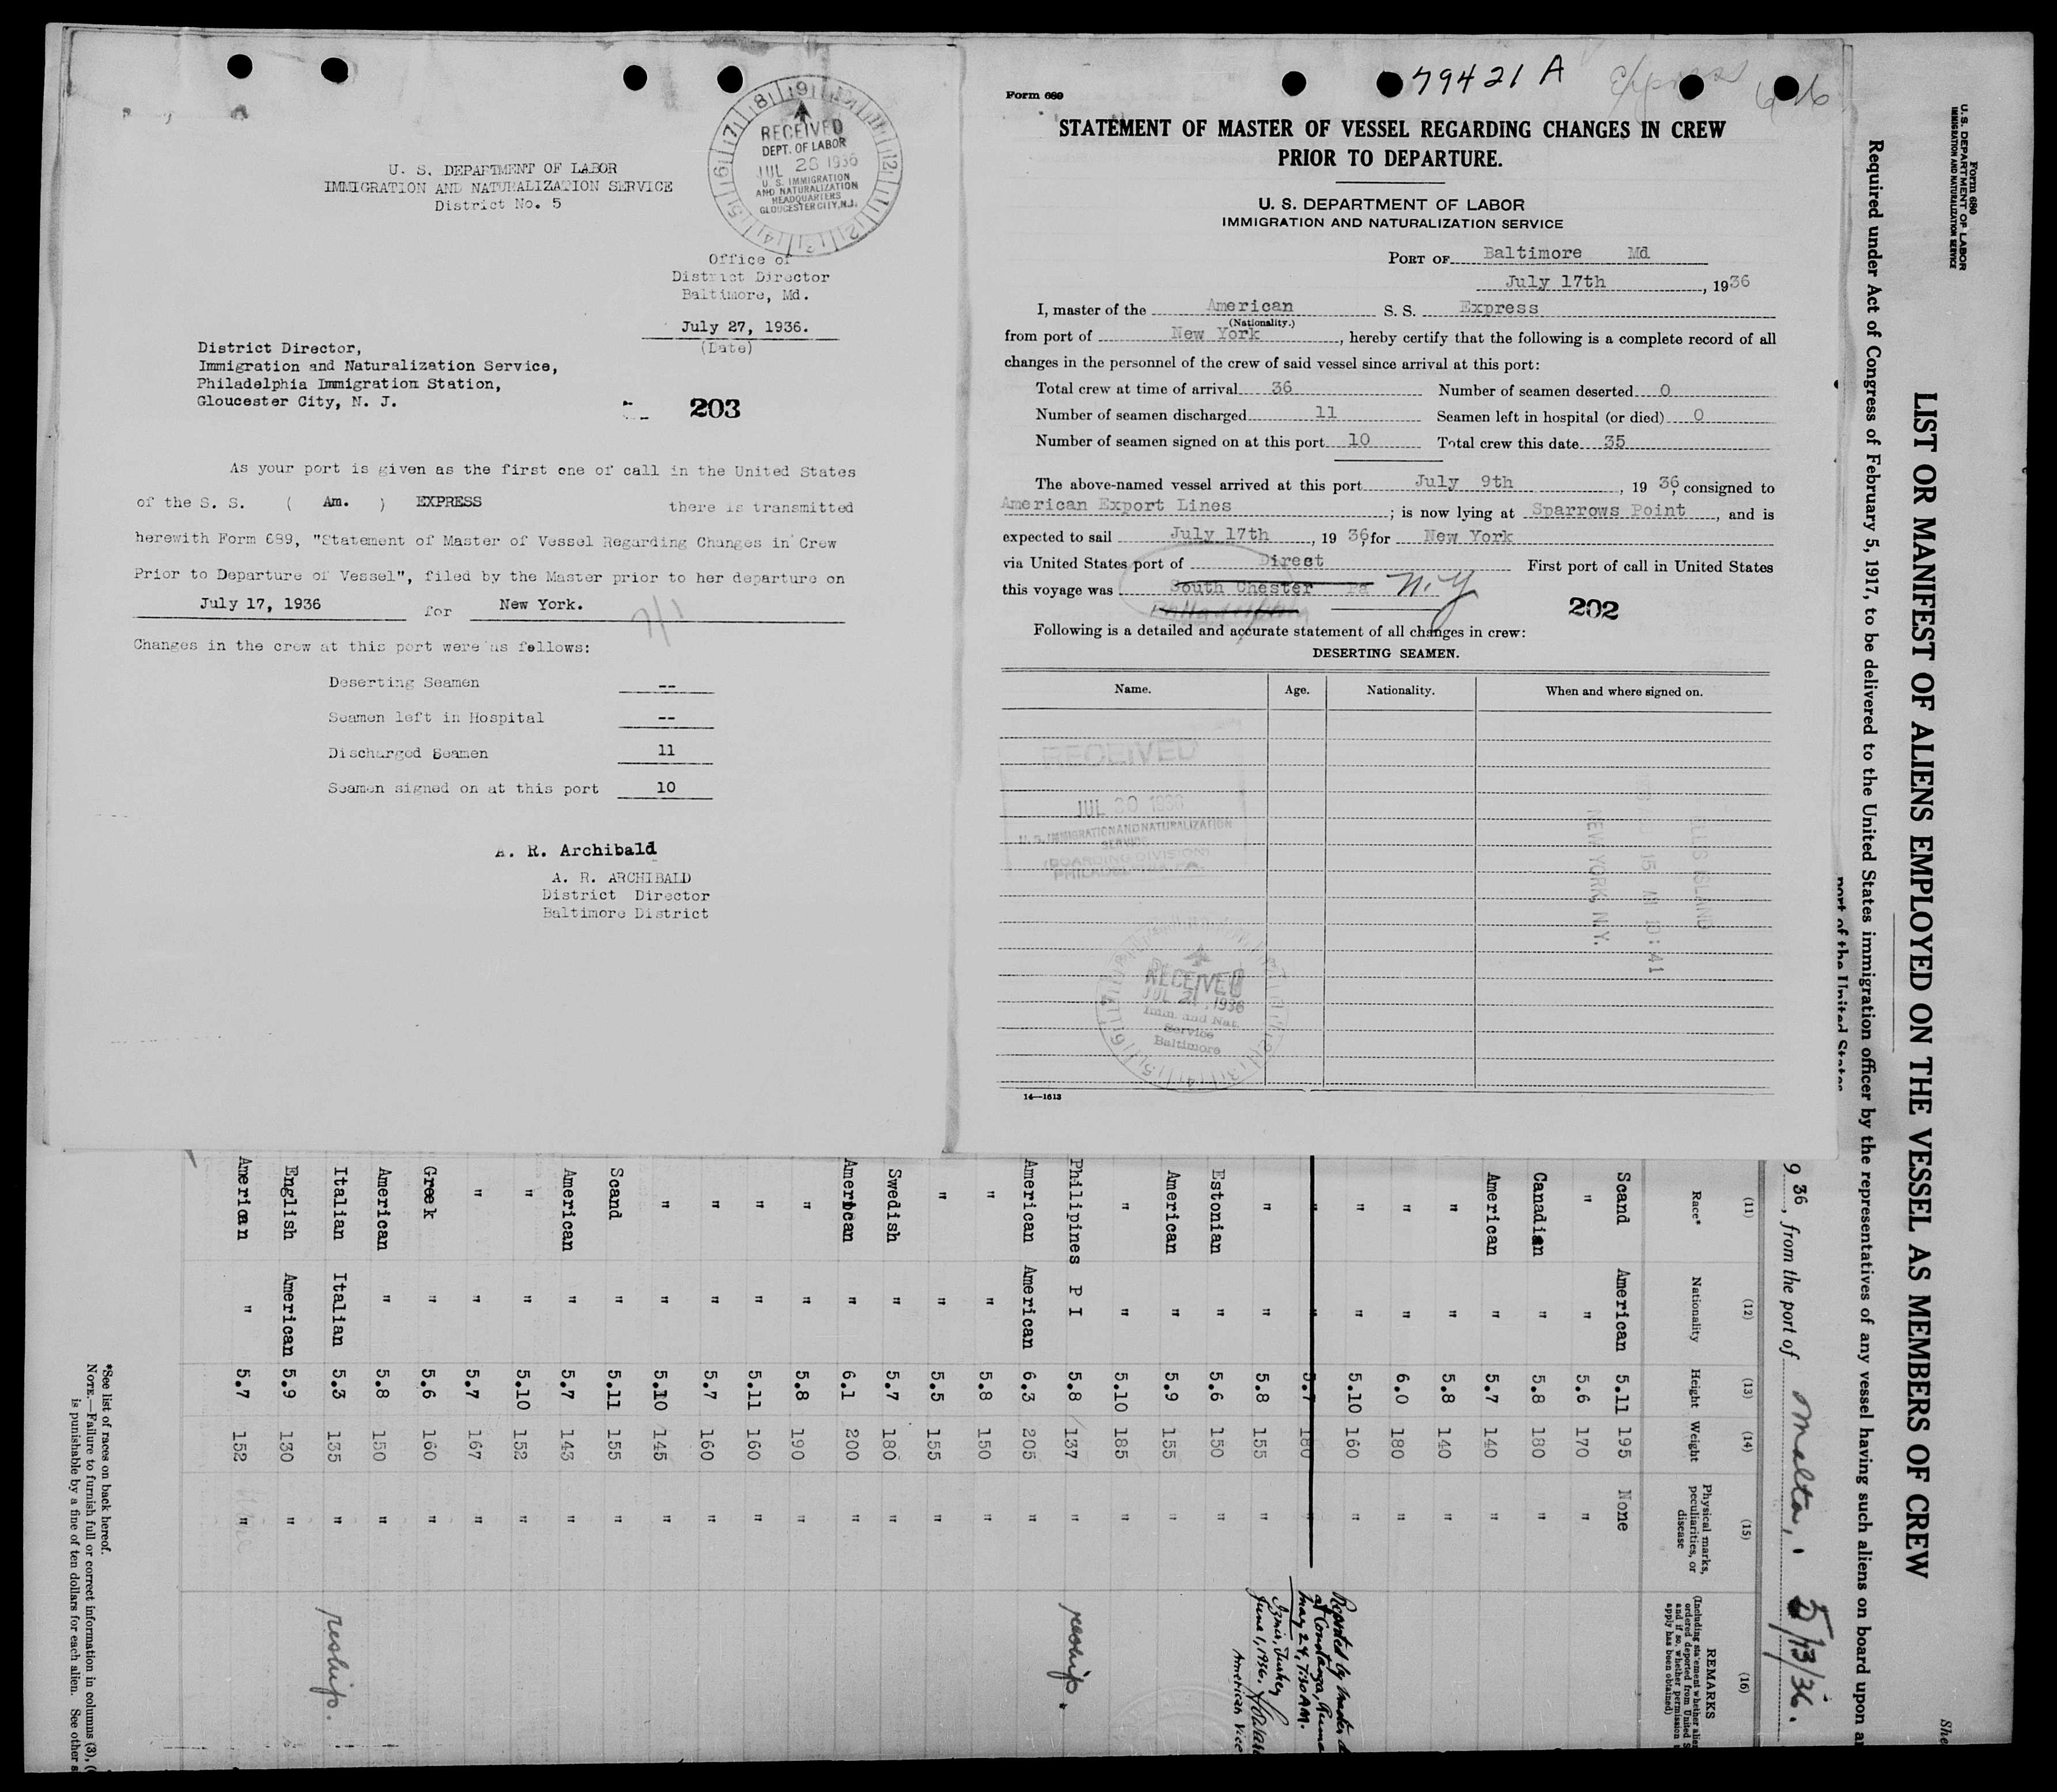 U. S. DEPARTMENT OF LABOR
IMMIGRATION AND NATURALIZATION SERVICE
District No. 5
RECEIVED
DEPT. OF LABOR
JUL 28 1936
U. S. IMMIGRATION
AND NATURALIZATION
HEADQUARTERS
GLOUCESTER CITY, N.J.
Office of
District Director
Baltimore, Md.
July 27, 1936.
(Date)
District Director,
Immigration and Naturalization Service,
Philadelphia Immigration Station,
Gloucester City, N. J.
203
As your port is given as the first one of call in the United States
of the S. S. ( Am. ) EXPRESS there is transmitted
herewith Form 689, "Statement of Master of Vessel Regarding Changes in Crew
Prior to Departure of Vessel", filed by the Master prior to her departure on
July 17, 1936 for New York.
Changes in the crew at this port were as follows:
Deserting Seamen --
Seamen left in Hospital --
Discharged Seamen 11
Seamen signed on at this port 10
A. R. Archibald
A. R. ARCHIBALD
District Director
Baltimore District
79421 A Express
Form 689
STATEMENT OF MASTER OF VESSEL REGARDING CHANGES IN CREW
PRIOR TO DEPARTURE.
U. S. DEPARTMENT OF LABOR
IMMIGRATION AND NATURALIZATION SERVICE
PORT OF Baltimore Md
July 17th, 1936
I, master of the American S. S. Express
(Nationality.)
from port of New York, hereby certify that the following is a complete record of all
changes in the personnel of the crew of said vessel since arrival at this port:
Total crew at time of arrival 36 Number of seamen deserted 0
Number of seamen discharged 11 Seamen left in hospital (or died) 0
Number of seamen signed on at this port 10 Total crew this date 35
The above-named vessel arrived at this port July 9th, 1936, consigned to
American Export Lines; is now lying at Sparrows Point, and is
expected to sail July 17th, 1936, for New York
via United States port of Direct First port of call in United States
this voyage was South Chester Pa N.Y
Philadelphia
202
Following is a detailed and accurate statement of all changes in crew:
DESERTING SEAMEN.
Name. Age. Nationality. When and where signed on.
RECEIVED
JUL 20 1936
U. S. IMMIGRATION AND NATURALIZATION
SERVICE
(BOARDING DIVISION)
PHILADELPHIA, PA.
ELLIS ISLAND
15 AM 10:41
NEW YORK, N.Y.
RECEIVED
JUL 21 1936
Imm. and Nat.
Service
Baltimore
14—1613
Form 680
U. S. DEPARTMENT OF LABOR
IMMIGRATION AND NATURALIZATION SERVICE
LIST OR MANIFEST OF ALIENS EMPLOYED ON THE VESSEL AS MEMBERS OF CREW
Required under Act of Congress of February 5, 1917, to be delivered to the United States immigration officer by the representatives of any vessel having such aliens on board upon
port of the United States
9 36, from the port of Malta, 5/13/36.
(11) (12) (13) (14) (15) (16)
Race* Nationality Height Weight Physical marks, peculiarities, or disease REMARKS
Scand American 5.11 195 None
" " 5.6 170 "
Canadian " 5.8 180 "
American " 5.7 140 "
" " 5.8 140 "
" " 6.0 180 "
" " 5.10 160 "
" " 5.7 180 "
" " 5.8 155 "
Estonian " 5.6 150 "
American " 5.9 155 "
" " 5.10 185 "
Philipines P I 5.8 137 " reship.
American American 6.3 205 "
" " 5.8 150 "
" " 5.5 155 "
Swedish " 5.7 180 "
American " 6.1 200 "
" " 5.8 190 "
" " 5.11 160 "
" " 5.7 160 "
" " 5.10 145 "
Scand " 5.11 155 "
American " 5.7 143 "
" " 5.10 152 "
" " 5.7 167 "
Greek " 5.6 160 "
American " 5.8 150 "
Italian Italian 5.3 135 " reship.
English American 5.9 130 "
American " 5.7 152 "
Reported by master
at Constanza,
May 24, 7:30 A.M.
Izmir, Turkey
June 1, 1936.
American Vice
*See list of races on back hereof.
NOTE.—Failure to furnish full or correct information in columns (3),
is punishable by a fine of ten dollars for each alien. See other